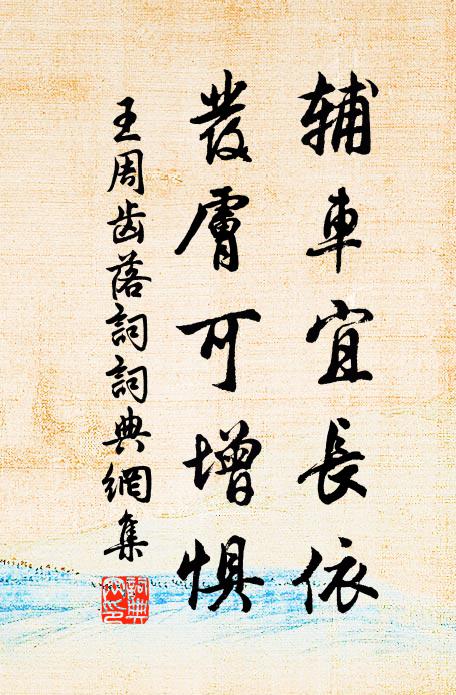 辅車宜長依
發膚可增惧
王周齿落詞詞典網集
詞典